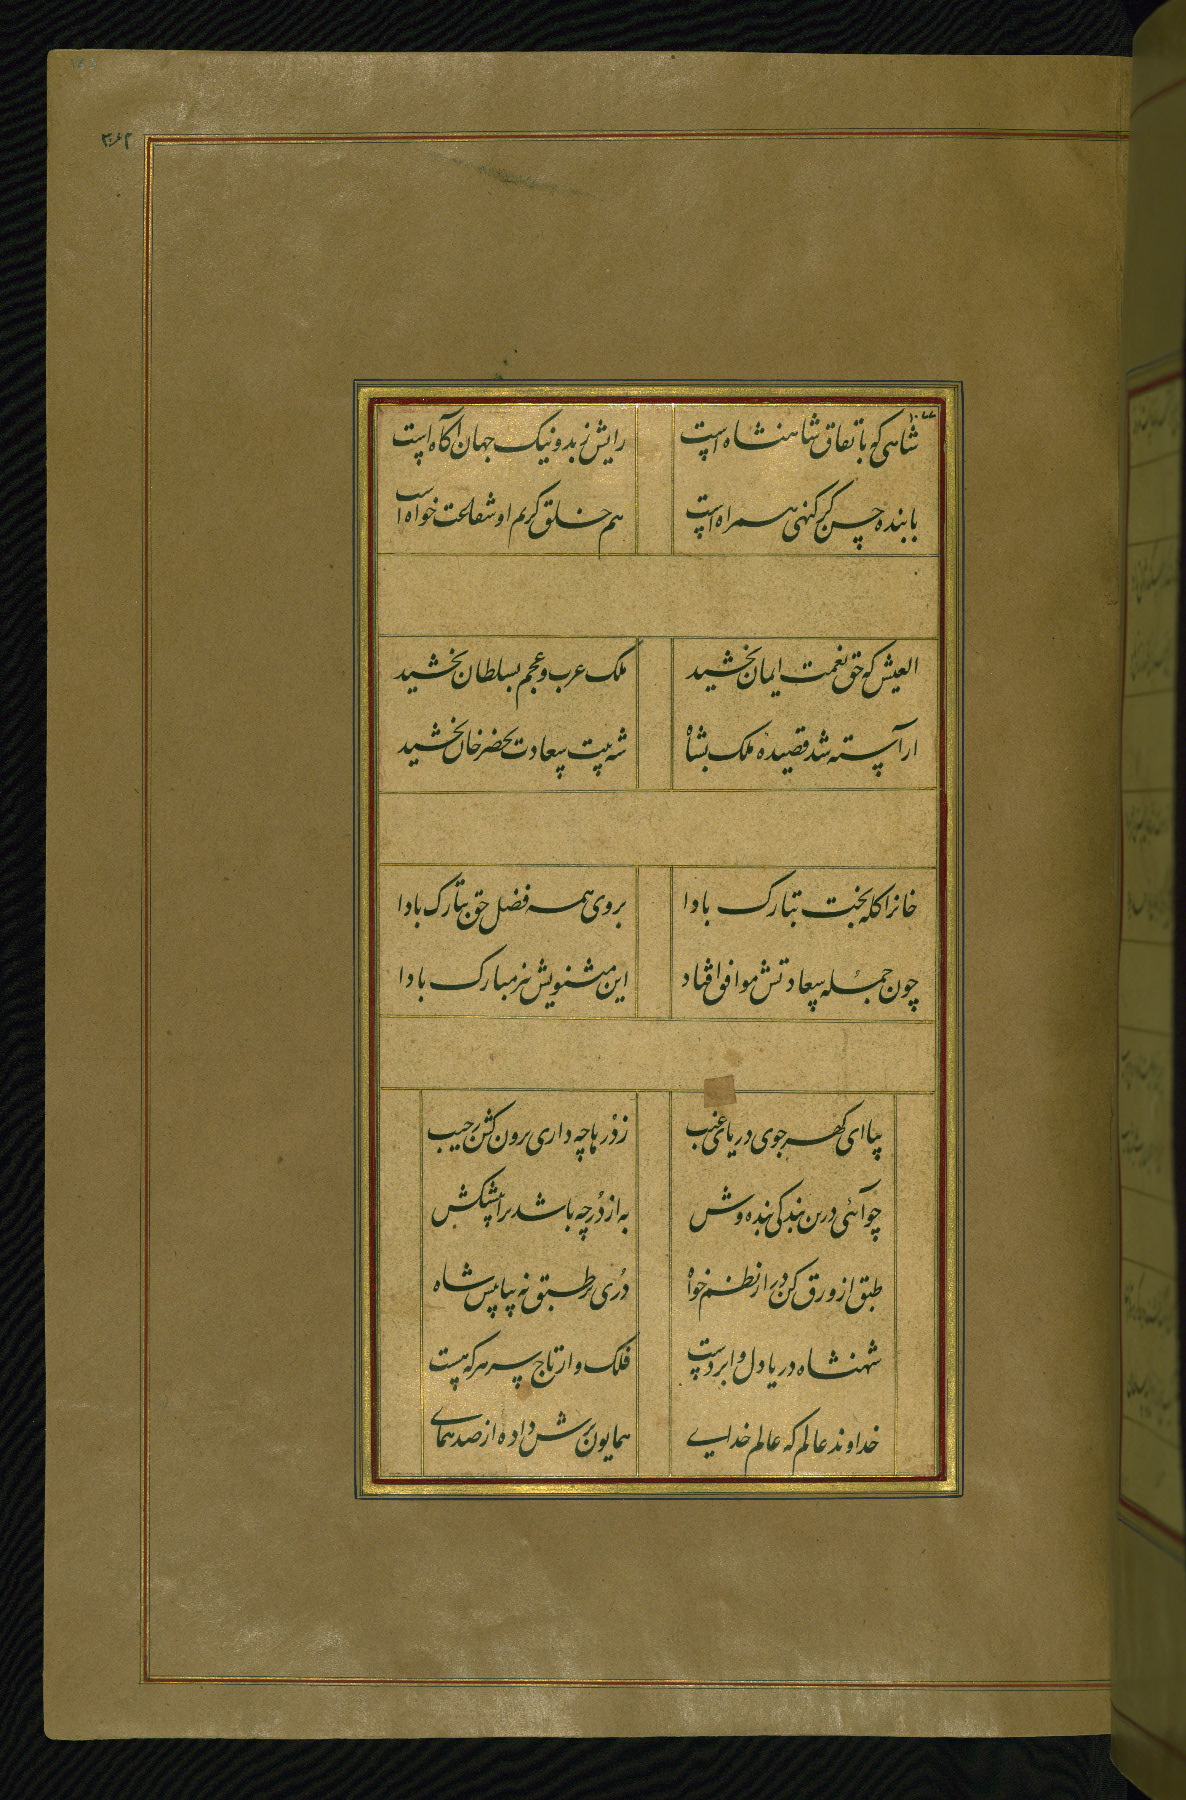 شاهی که باتفاق شاهنشاه است رایش ز بد و نیک جهان آگاه است
با بنده حسن گر گنهی همراه است هم خلق کریم او شفاعت خواه است
العیش که حق نعمت ایمان بخشید ملک عرب و عجم بسلطان بخشید
آراسته شد قصیده ملک بشاه شه بیت سعادت بخضر خان بخشید
خانرا کله بخت تبارک بادا بر وی همه فضل حق تبارک بادا
چون جمله سعادتش موافق افتاد این مثنویش نیز مبارک بادا
بیا ای گهر جوی دریای غیب ز درها چه داری برون کش ز جیب
چو آئی درین بندگی بنده وش به از در چه باشد برا پیشکش
طبق از ورق کن در از نظم خواه دری بر طبق نه بیا پیش شاه
شهنشاه دریا دل و ابر دست فلک وار تاج سر هر که هست
خداوند عالم که عالم خدای همایون برش داده از صد همای